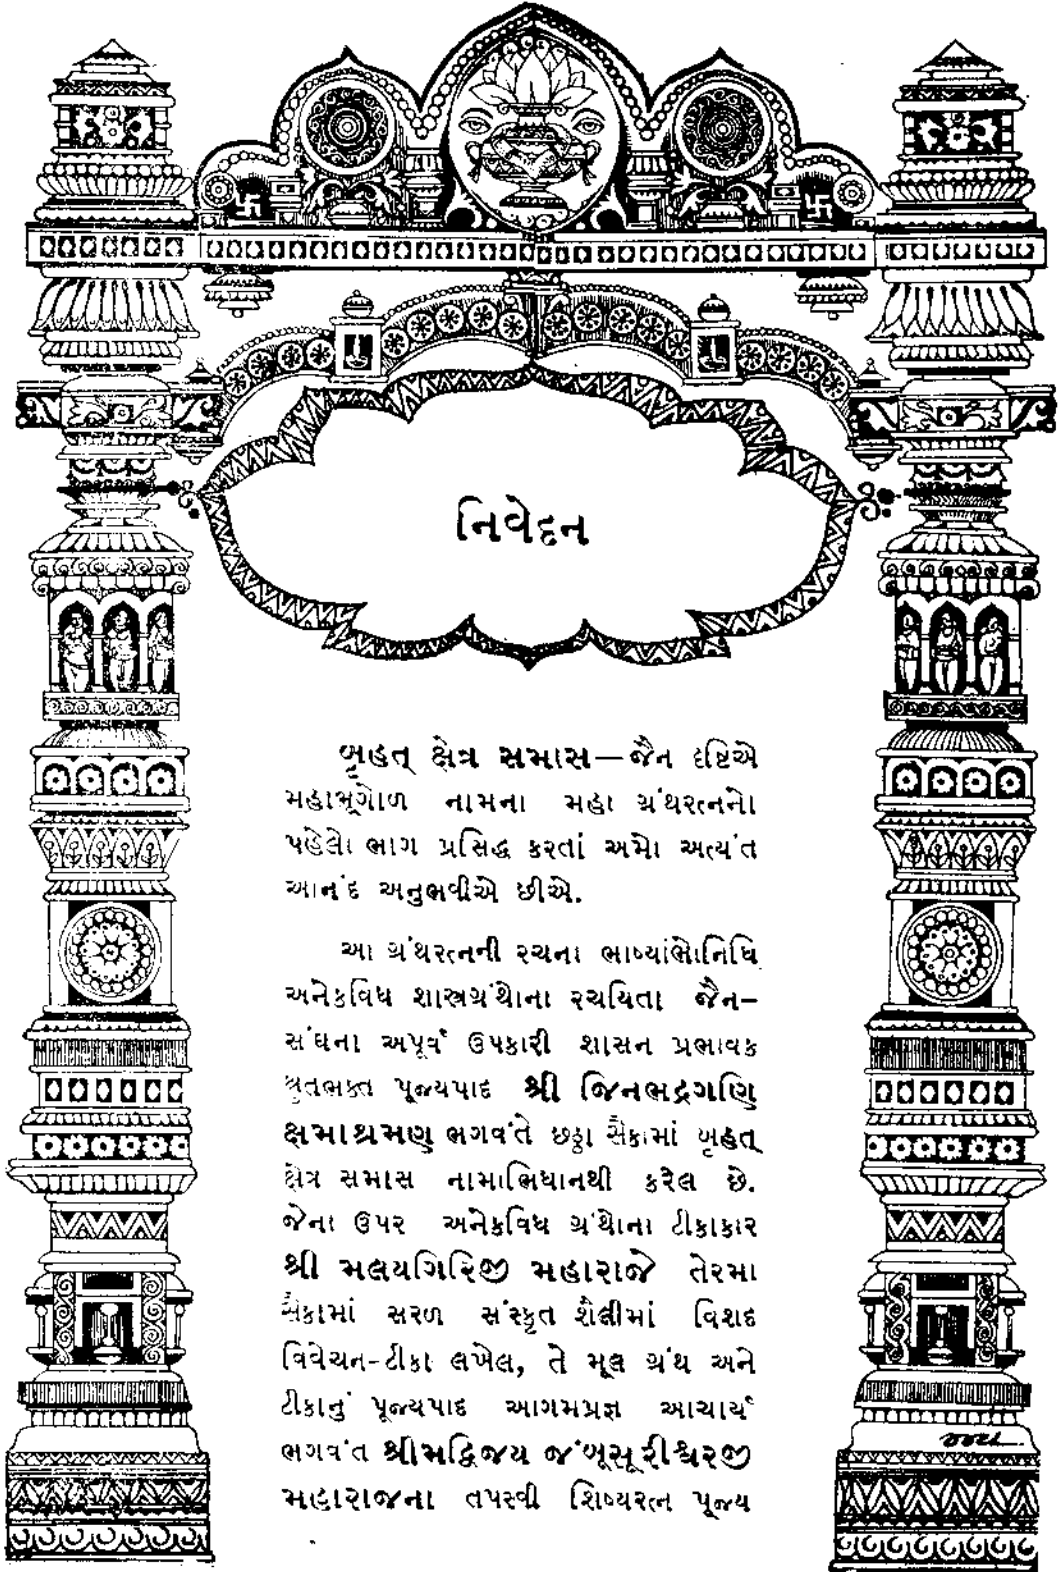 નિવેદન
બૃહત્ ક્ષેત્ર સમાસ—જૈન દૃષ્ટિએ
મહાભૂગોળ નામના મહા ગ્રંથરત્નનો
પહેલો ભાગ પ્રસિદ્ધ કરતાં અમો અત્યંત
આનંદ અનુભવીએ છીએ.
આ ગ્રંથરત્નની રચના ભાષ્યાંભોનિધિ
અનેકવિધ શાસ્ત્રગ્રંથોના રચયિતા જૈન-
સંઘના અપૂર્વ ઉપકારી શાસન પ્રભાવક
શ્રુતભક્ત પૂજ્યપાદ શ્રી જિનભદ્રગણિ
ક્ષમાશ્રમણ ભગવંતે છઠ્ઠા સૈકામાં બૃહત્
ક્ષેત્ર સમાસ નામાભિધાનથી કરેલ છે.
જેના ઉપર અનેકવિધ ગ્રંથોના ટીકાકાર
શ્રી મલયગિરિજી મહારાજે તેરમા
સૈકામાં સરળ સંસ્કૃત શૈલીમાં વિશદ
વિવેચન-ટીકા લખેલ, તે મૂલ ગ્રંથ અને
ટીકાનું પૂજ્યપાદ આગમપ્રજ્ઞ આચાર્ય
ભગવંત શ્રીમદ્વિજય જંબૂસૂરીશ્વરજી
મહારાજના તપસ્વી શિષ્યરત્ન પૂજ્ય